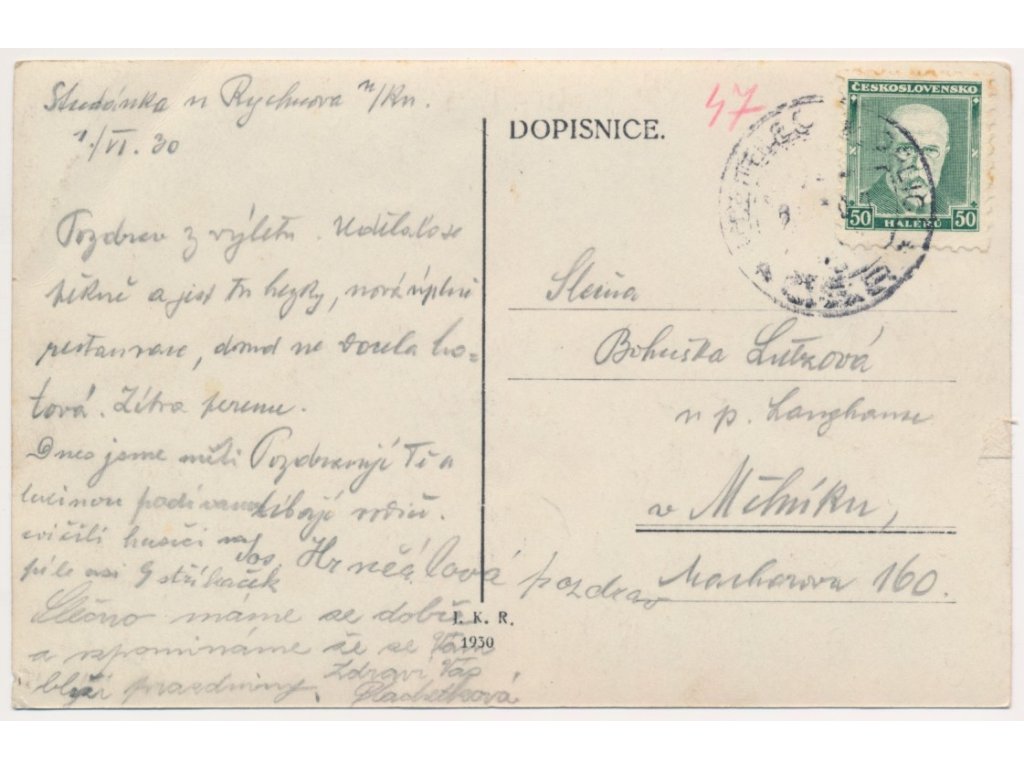 Studánka u Rychnova n/Kn.
1/VI. 30
Pozdrav z výletu. Udělalo se
pěkně a jest tu hezky, nová úplně
restaurace, dosud ne docela ho=
tová. Zítra jedeme.
Dnes jsme měli Pozdravují Tě a
podívanou líbají rodiče.
cvičili hasiči na
asi 9 stříkaček
Jos. Hrnčálová pozdrav
Slečno máme se dobře
a vzpomínáme že se Vám
blíží prazdniny. Zdraví Vás
DOPISNICE.
47
ČESKOSLOVENSKO
50 HALÉŘŮ 50
Slečna
Bohuška Lutzová
u p. Langhanse
v Mělníku,
Macharova 160.
J. K. R.
1930